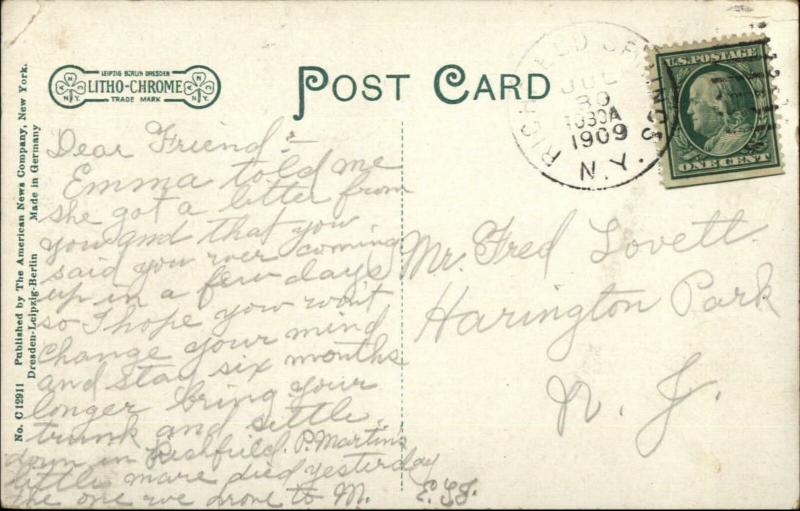 No. C 12911 Published by The American News Company, New York.
Dresden-Leipzig-Berlin Made in Germany
LEIPZIG BERLIN DRESDEN
LITHO-CHROME
TRADE MARK
N.Y.
N.Y.
POST CARD
RICHFIELD SPRINGS
JUL
30
1030A
1909
N.Y.
U.S. POSTAGE
ONE CENT
Dear Friend:-
Emma told me
she got a letter from
you and that you
said you wer coming
up in a few days
so I hope you won't
change your mind
and stay six months
longer bring your
trunk and settle
down in Richfield. P. Martins
little mare died yesterday
the one we drove to M.
E.L.J.
Mr. Fred Lovett.
Harington Park
N. J.